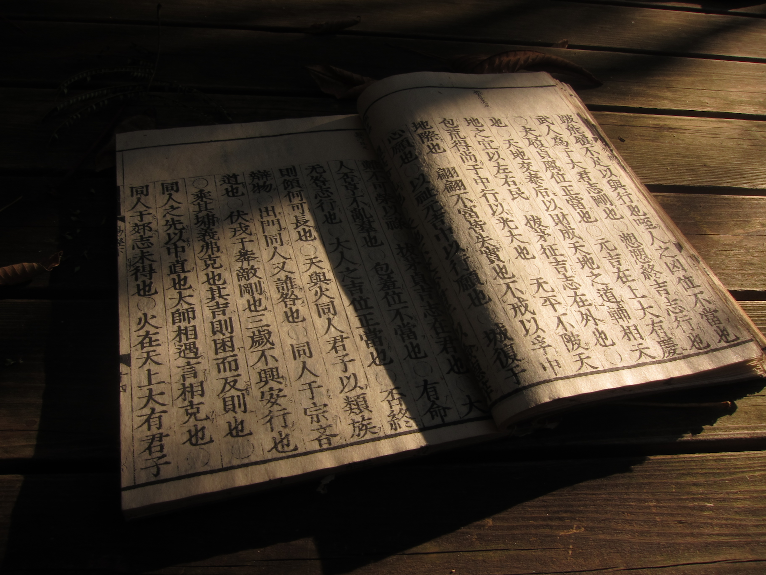 跛能履不足以與行也咥人之凶位不當也
武人爲于大君志剛也○愬愬終吉志行也
○夬履貞厲位正當也○元吉在上大有慶
也○天地交泰后以財成天地之道輔相天
地之宜以左右民○拔茅征吉志在外也○
包荒得尚于中行以光大也○无平不陂天
地際也○翩翩不富皆失實也不戒以孚中
心願也○以祉元吉中以行願也○城復于
拔茅貞吉志在君也○大
人否亨不亂羣也○包羞位不當也○有命
无咎志行也○大人之吉位正當也○否終
則傾何可長也○天與火同人君子以類族
辨物○出門同人又誰咎也○同人于宗吝
道也○伏戎于莽敵剛也三歲不興安行也
○乘其墉義弗克也其吉則困而反則也○
同人之先以中直也大師相遇言相克也○
同人于郊志未得也○火在天上大有君子